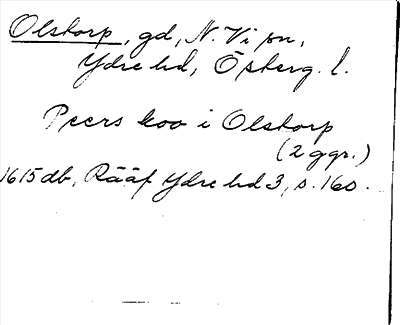 Olstorp, gd, N. Vi sn,
Ydre hd, Österg. l.
Peers boo i Olstorp
(2 ggr.)
1615 db, Rääf Ydre hd 3, s. 160.